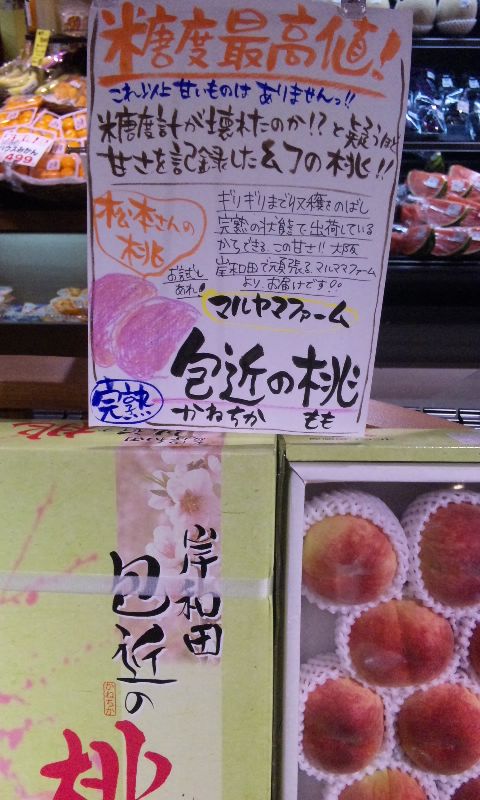 糖度最高値!
これ以上甘いものは ありませんっ!!
糖度計が壊れたのか!?と疑うほど
甘さを記録した幻の桃!!
松本さんの
桃
お試し
あれ!
ギリギリまで収穫をのばし
完熟の状態で出荷している
からできる この甘さ!! 大阪
岸和田で頑張る マルママファーム
より、お届けです。
マルヤマファーム
完熟
包近の桃
かねちか もも
岸和田
包近の
かねちか
桃
ハウスみかん
499